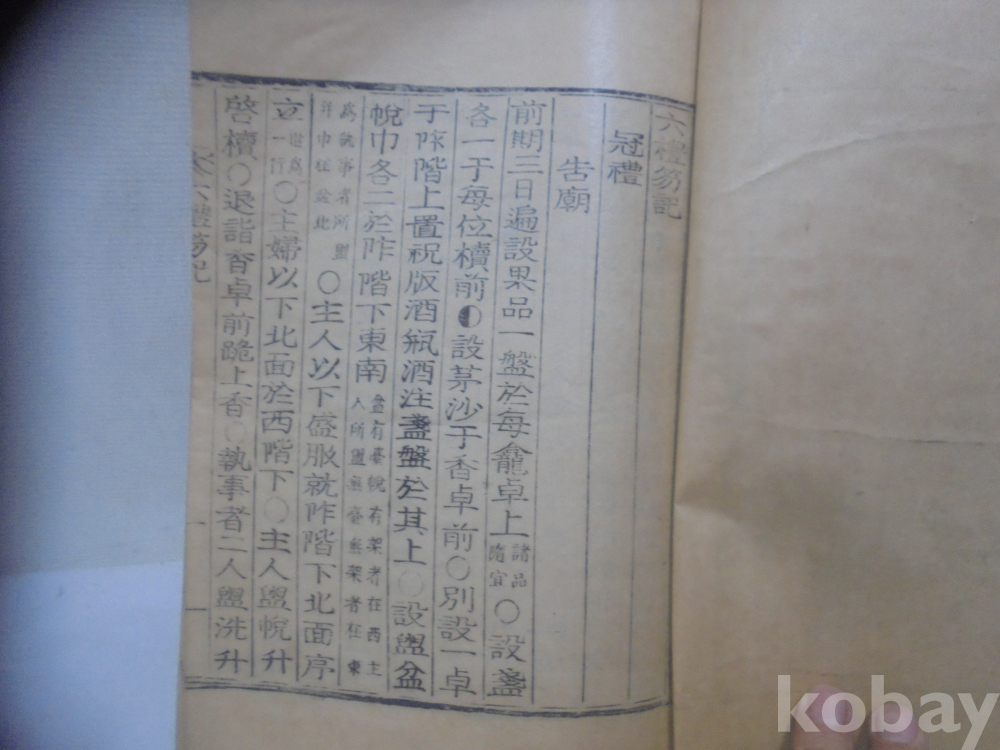 六禮笏記
冠禮
告廟
前期三日遍設果品一盤於每龕卓上諸品隋宜○設盞
各一于每位櫝前◐設茅沙于香卓前○別設一卓
于阼階上置祝版酒瓶酒注盞盤於其上○設盥盆
帨巾各二於阼階下東南盆有臺帨有架者在西主人所盥無臺無架者在東
爲執事者所盥并巾在盆北○主人以下盛服就阼階下北面序
立世爲一行○主婦以下北面於西階下○主人盥帨升
啓櫝○退詣香卓前跪上香○執事者二人盥洗升
六禮笏記
一
kobay